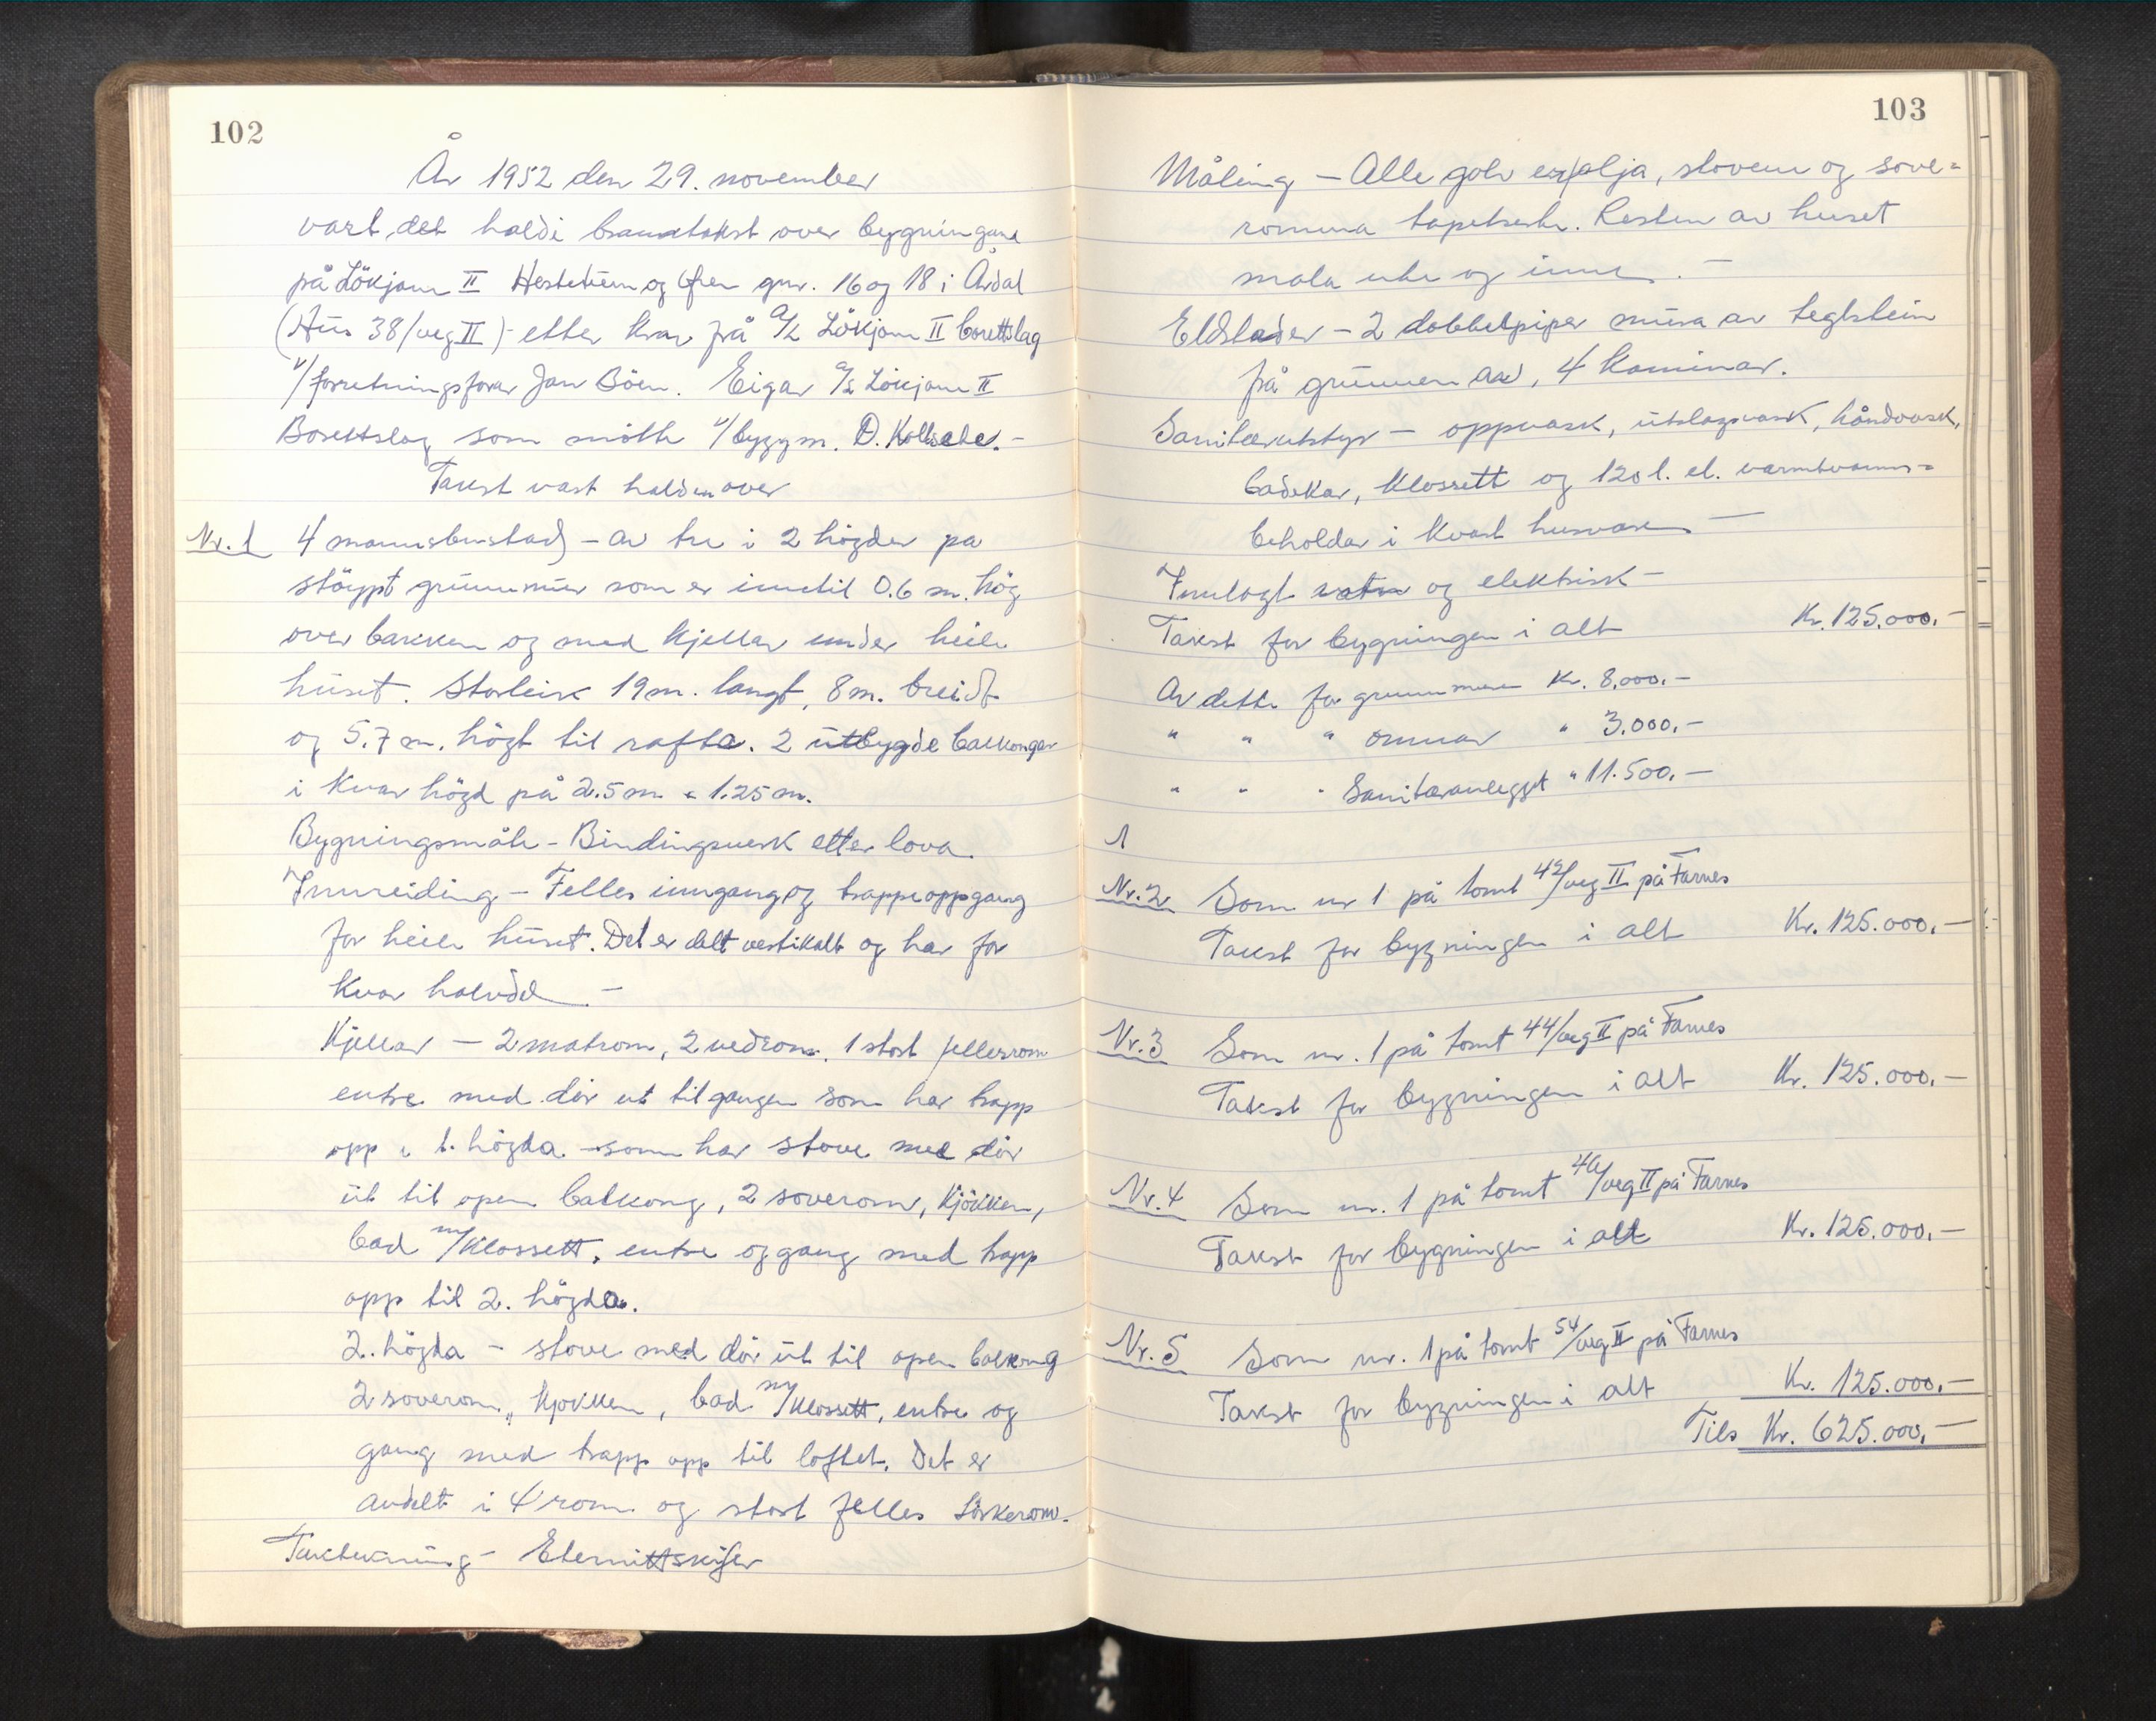 102
År 1952 den 29. november
vart det haldi branntakst over bygningane
på Lökjom II Hestetun og Øren gnr. 16 og 18 i Årdal
(Hus 38/veg II) - etter krav frå A/L Lökjom II borettslag
v/forretningsförar Jan Böen. Eigar A/L Lökjom II
Borettslag som mötte v/byggm. D. Kollsete. -
Takst vart halden over
Nr. 1 4 mannsbustad - av tre i 2 högder på
stöypt grunnmur som er inntil 0.6 m. hög
over bakken og med kjellar under heile
huset. Storleik 19 m. langt, 8 m. breidt
og 5.7 m. högt til rafta. 2 utbygde balkongar
i kvar högd på 2.5 m x 1.25 m.
Bygningsmåte - Bindingsverk etter lova.
Innreiding - Felles inngang og trappeoppgang
for heile huset. Det er delt vertikalt og har for
kvar halvdel. -
Kjellar - 2 matrom, 2 vedrom, 1 stort fellesrom
entre med dör ut til gangen som har trapp
opp i 1. högda - som har stove med dör
ut til open balkong, 2 soverom, kjökken,
bad m/klossett, entre og gang med trapp
opp til 2. högda.
2. högda - stove med dör ut til open balkong
2 soverom, kjökken, bad m/klossett, entre og
gang med trapp opp til loftet. Det er
avdelt i 4 rom og stort felles törkerom.
Taktekning - Eternittskifer
103
Måling - Alle golv er olja, stovene og sove=
romma tapetserte. Resten av huset
mala ute og inne. -
Eldstader - 2 dobbelpiper mura av teglstein
frå grunnen av, 4 kaminar.
Sanitærutstyr - oppvask, utslagsvask, håndvask,
badekar, klossett og 120 l. el. varmtvanns=
beholdar i kvart husvære -
Innlagt vatn og elektrisk -
Takst for bygningen i alt Kr. 125.000.-
Av dette for grunnmuren Kr. 8.000.-
" " " omnar " 3.000.-
" " " Sanitæranlegget " 11.500.-
1
Nr. 2 Som nr 1 på tomt 42/veg II på Farnes
Takst for bygningen i alt Kr. 125.000.-
Nr. 3 Som nr. 1 på tomt 44/veg II på Farnes
Takst for bygningen i alt Kr. 125.000.-
Nr. 4 Som nr. 1 på tomt 40/veg II på Farnes
Takst for bygningen i alt Kr. 125.000.-
Nr. 5 Som nr. 1 på tomt 54/veg II på Farnes
Takst for bygningen i alt Kr. 125.000.-
Tils Kr. 625.000.-